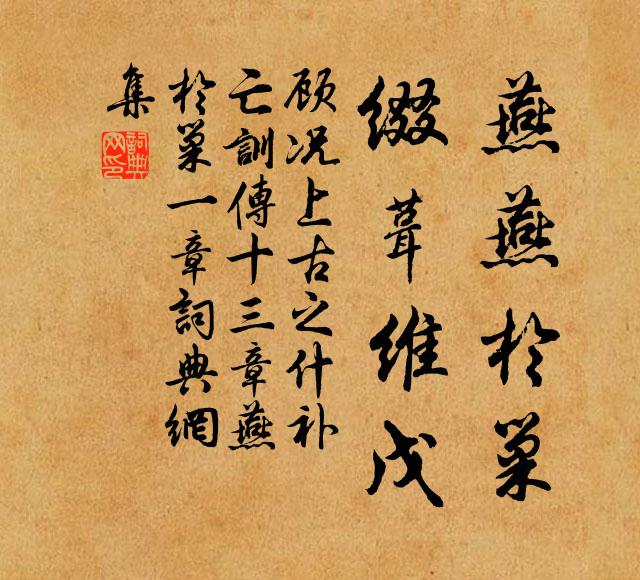 燕燕於巢
缀葺维戊
顾况上古之什补
亡訓傳十三章燕
於巢一章詞典網
集
詞典
网印